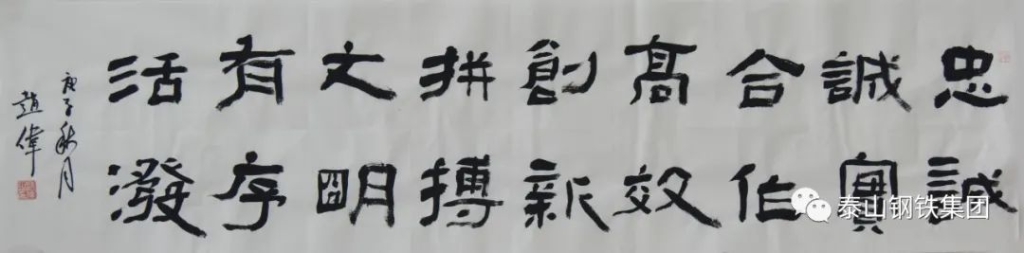 忠誠
誠實
合作
高效
創新
拼搏
文明
有序
活潑
庚子秋月
趙偉
泰山钢铁集团